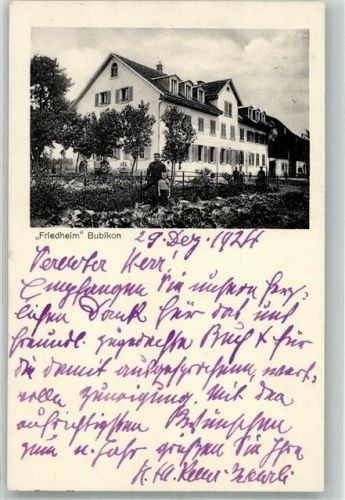 „Friedheim" Bubikon
29. Dez. 1924
Verehrter Herr!
Empfangen Sie unsern herz-
lichen Dank für das uns
freundl. zugedachte Buch & für
die damit ausgesprochene, wert-
volle Zuneigung. Mit den
aufrichtigsten Wünschen
zum n. Jahr grüßen Sie Ihre